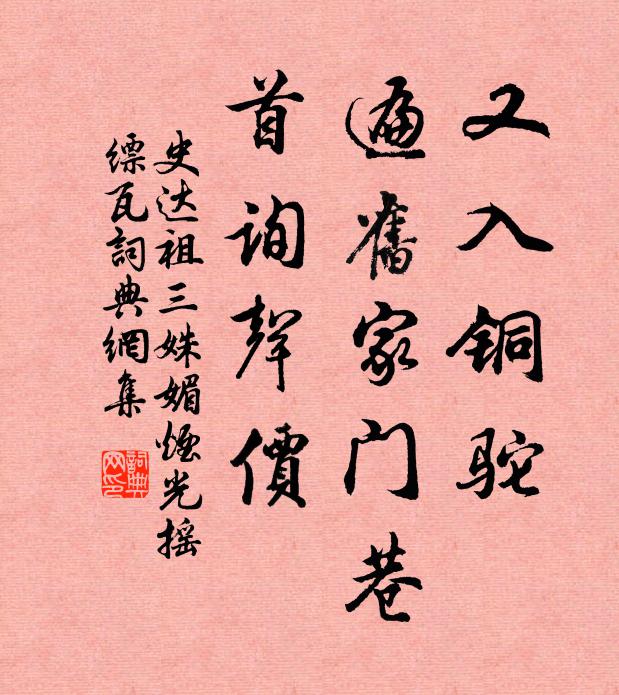 又入铜驼
遍舊家门巷
首询聲價
史达祖三姝媚煙光摇
缥瓦詞典網集
詞典网印